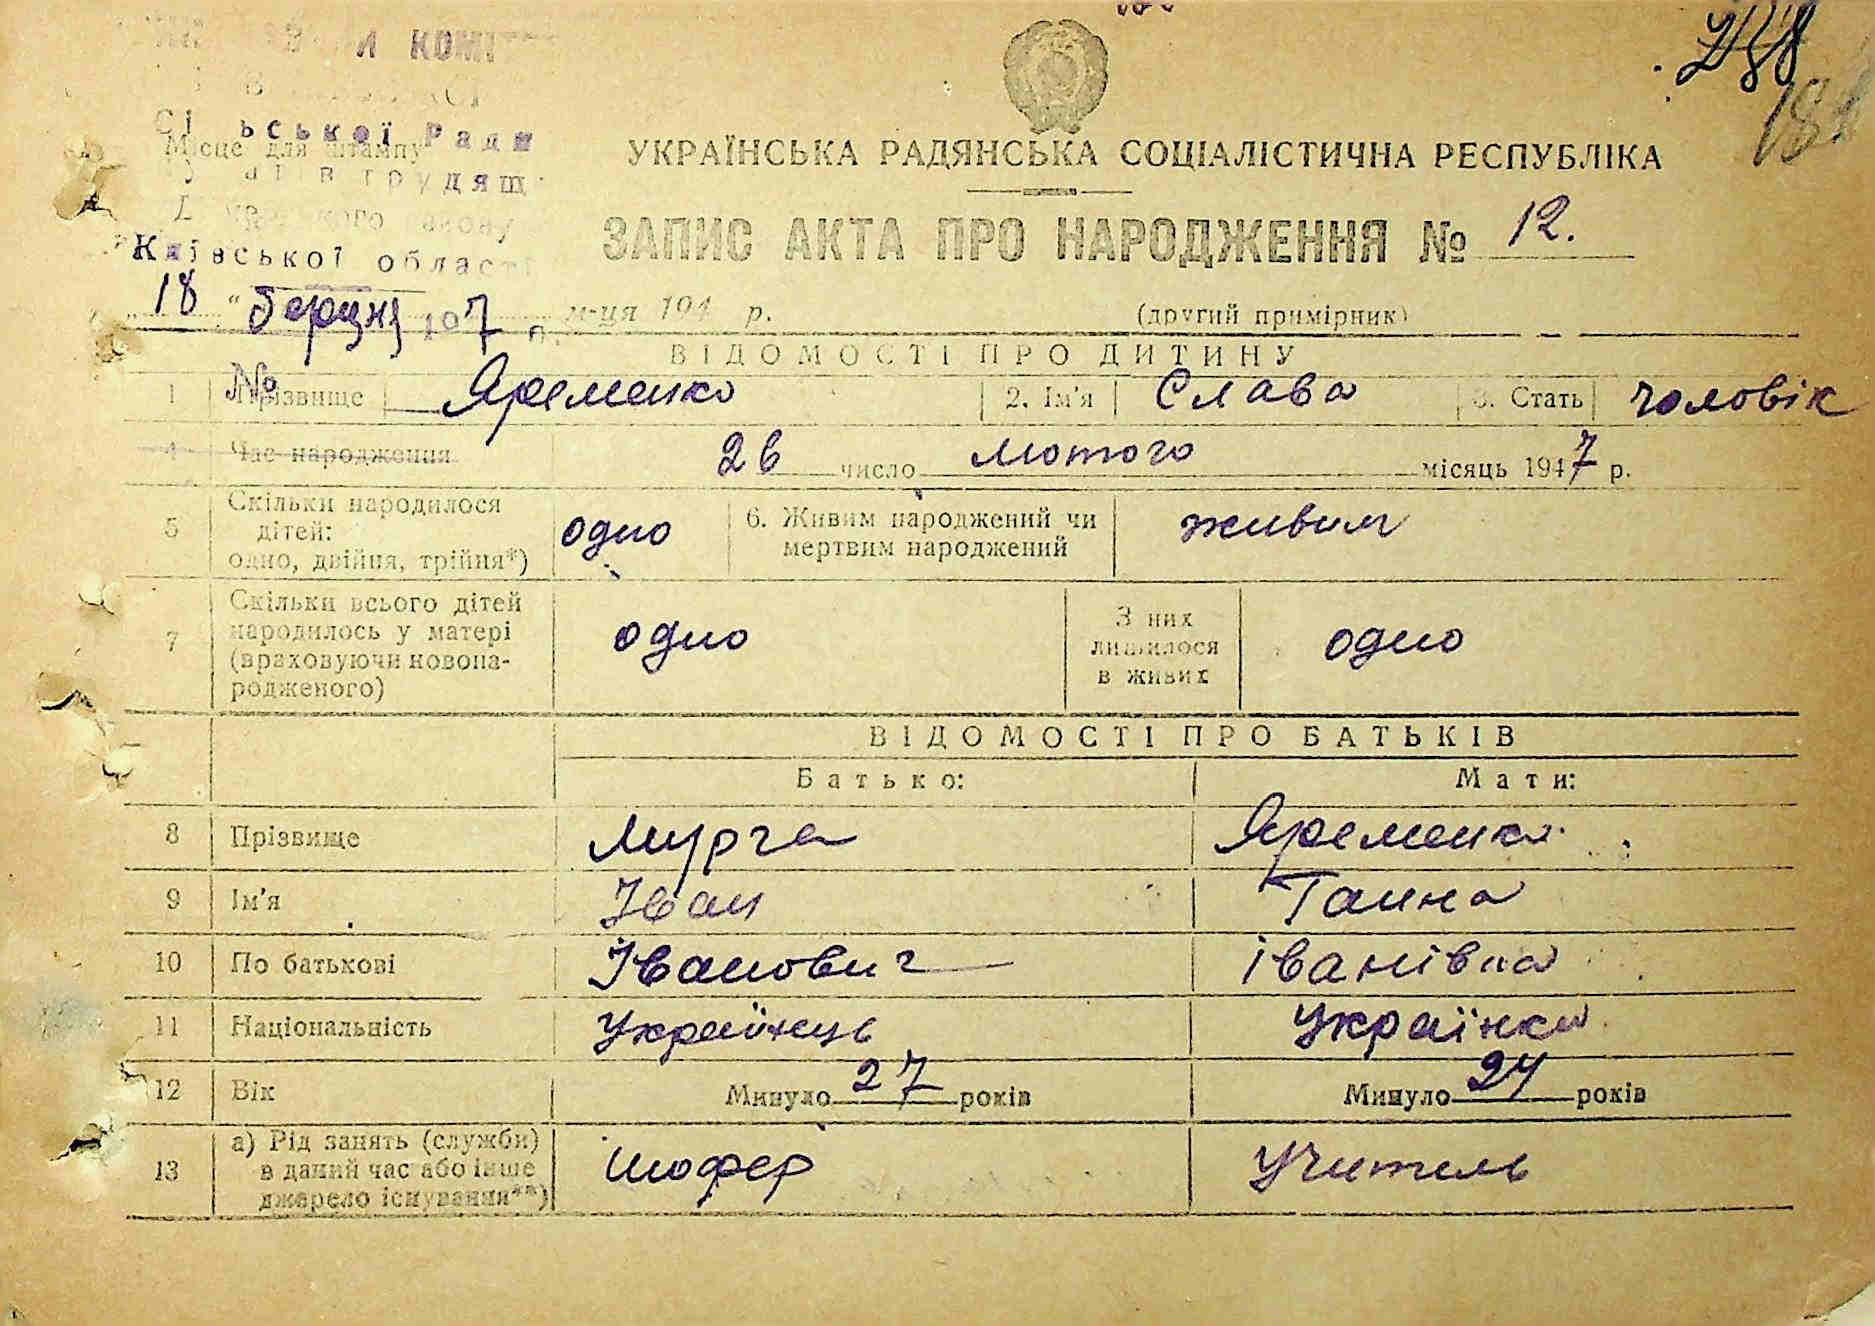 КОМІТ
сільської Ради
Місце для штампу
трудящ
району
Київської області
УКРАЇНСЬКА РАДЯНСЬКА СОЦІАЛІСТИЧНА РЕСПУБЛІКА
ЗАПИС АКТА ПРО НАРОДЖЕННЯ № 12.
18 " березня 1947 р. м-ця 194 р.
(другий примірник)
ВІДОМОСТІ ПРО ДИТИНУ
№
1 Прізвище Яременко 2. Ім'я Слава 3. Стать чоловік
4 Час народження 26 число лютого місяць 1947 р.
5 Скільки народилося дітей: одно, двійня, трійня*) одно 6. Живим народжений чи мертвим народжений живим
7 Скільки всього дітей народилось у матері (враховуючи новонародженого) одно З них лишилося в живих одно
ВІДОМОСТІ ПРО БАТЬКІВ
Батько: Мати:
8 Прізвище Мурга Яременко
9 Ім'я Іван Ганна
10 По батькові Іванович Іванівна
11 Національність Українець Українка
12 Вік Минуло 27 років Минуло 24 років
13 а) Рід занять (служби) в даний час або інше джерело існування**) шофер Учитель